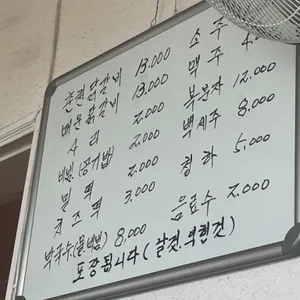 춘천닭갈비 13,000 소주
매운닭갈비 13,000 맥주
사리 2,000 복분자 12,000
비빔(공기밥) 2,000 백세주 8,000
밀떡 2,000 청하 5,000
치즈떡 3,000 음료수 2,000
막국수(물,비빔) 8,000
포장됩니다(날것,익힌것)